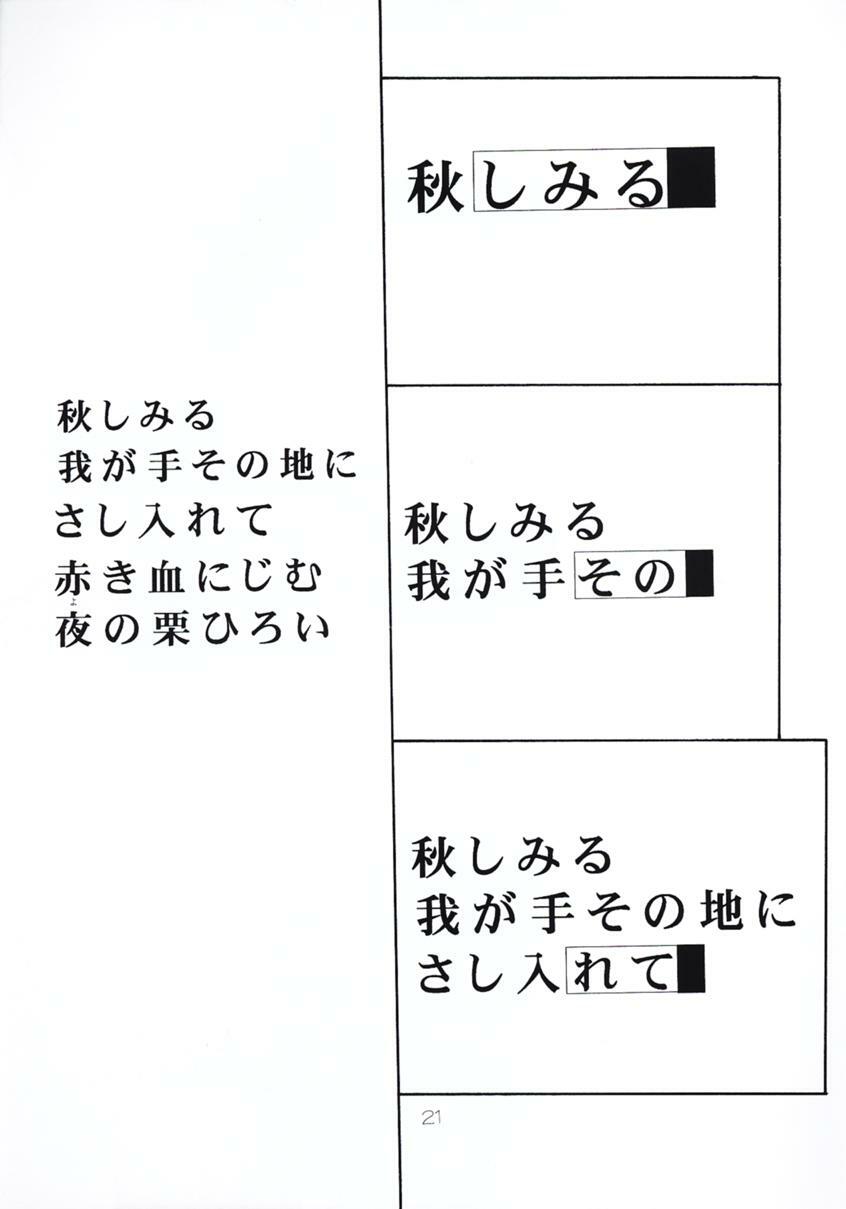 秋しみる
秋しみる
我が手その
秋しみる
我が手その地に
さし入れて
秋しみる
我が手その地に
さし入れて
赤き血にじむ
夜の栗ひろい
よ
21